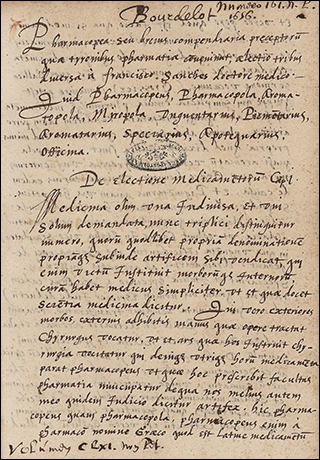 Numero 161. A. L.
Bourdelot 1656.
Pharmacopea seu brevis compendiaria preceptorũ
quæ tyronibus pharmatia conveniunt a lectionibus
diversa à francisco Sanches doctore medico.
Quid Pharmacopeus, Pharmacopola, Aroma-
topola, Myropola, Unguentarius, Pigmentarius,
Aromatarius, Speciarius, Apotequarius,
Officina.
De Electione Medicamentorũ Cap. 1.
Medicina olim una Indivisa, et uni
solum demandata, nunc triplici distinguitur
numero, quorũ quodlibet propria denominatione
propriũq subinde artificem sibi vendicat, qui
enim victũ Instituit morborũq Internorũ
curã habet medicus simpliciter, ut et qua docet
scientia medicina dicitur. Qui vero exteriores
morbos externis adhibitis manus quæ opere tractat
Chyrurgus vocatur, ut et ars qua hos Instruit chy-
rurgia vocitatur qui denique utrisque horũ medicamenta
parat pharmacopeus ut quæ hoc prescribit facultas
pharmatia nuncupatur de qua nos melius autem
meo quidem Iudicio dicitur artifex. hic pharma-
copeus quam pharmacopola, pharmacopeus enim a
pharmaco nomine Græco quod est latine medicamentũ
CLXI.